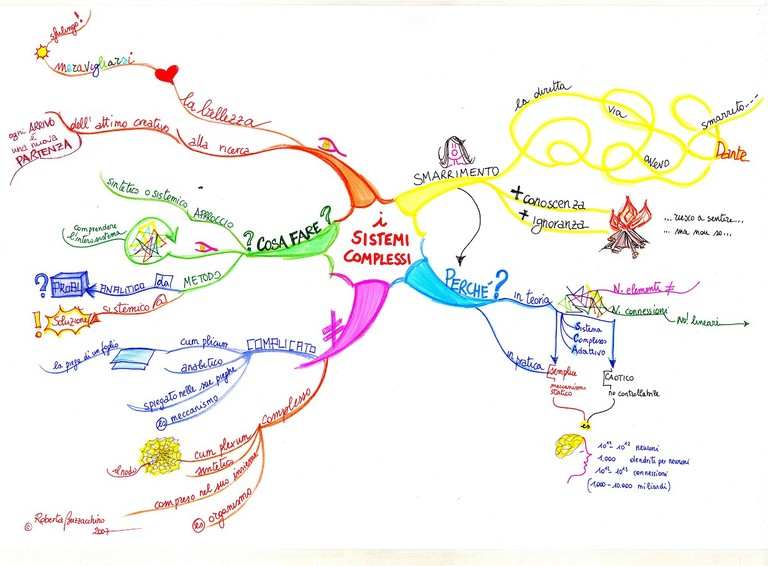 i
SISTEMI
COMPLESSI
SMARRIMENTO
la diritta
via
avevo
smarrito----
Dante
+ conoscenza
+ ignoranza
... riesco a sentire...
... ma non so...
PERCHÉ?
in teoria
N. elementi ≠
N. connessioni
No! lineari
Sistema
Complesso
Adattivo
in pratica
semplice
meccanismi
statico
CAOTICO
no controllabile
es
neuroni
1.000 dendriti per neuroni
connessioni
(1.000 - 10.000 miliardi)
≠
COMPLICATO
cum plicum
la piega di un foglio
analitico
spiegato nelle sue pieghe
es meccanismo
complesso
cum plexum
il nodo
sintetico
compreso nel suo insieme
es organismo
? COSA FARE ?
APPROCCIO
sintetico o sistemico
comprendere
l'intero sistema
METODO
da
ANALITICO
PROBL
?
a
SISTEMICO
Soluzione
!
la bellezza
meravigliarsi
alla ricerca
dell'attimo creativo
ogni ARRIVO
è
una nuova
PARTENZA
© Roberta Buzzacchino
2007